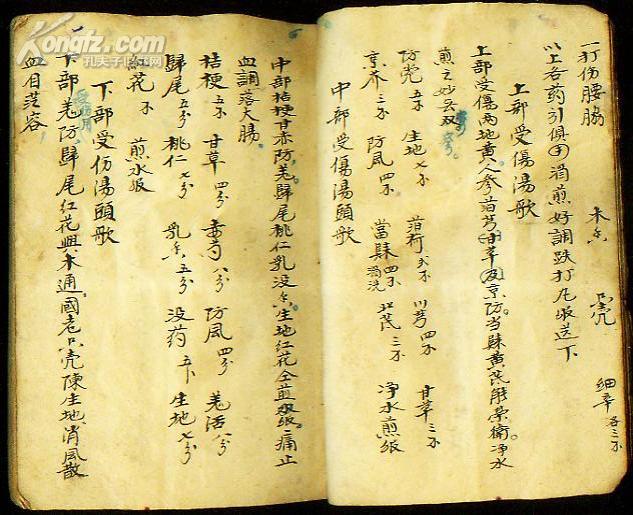 一打伤腰胁 木香 只壳 细辛各三不
以上各药引俱用酒煎好調跌打丸服送下
上部受傷湯歌
上部受傷两地黄人參首芎甘草及京防。当縣黄芪能荣衛净水
煎之妙云双
防党五不 生地七不 川芎四不 甘草三不
京芥三不 防风四不 當縣四不酒洗 北芪三不 净水煎服
中部受傷湯頭歌
中部桔梗甘赤防。羌歸尾桃仁乳没香。生地红花仝煎服。痛止
血調落大腸。
桔梗五不 甘草四分 赤芍八分 防風四分 羌活八分
歸尾五分 桃仁七分 乳香五分 没药五卞 生地七分
红花不 煎水服
下部受伤湯頭歌
下部羌防歸尾红花與木通。國老只壳陳生地。消風散
血目范容
Kongfz.com
孔夫子旧书网